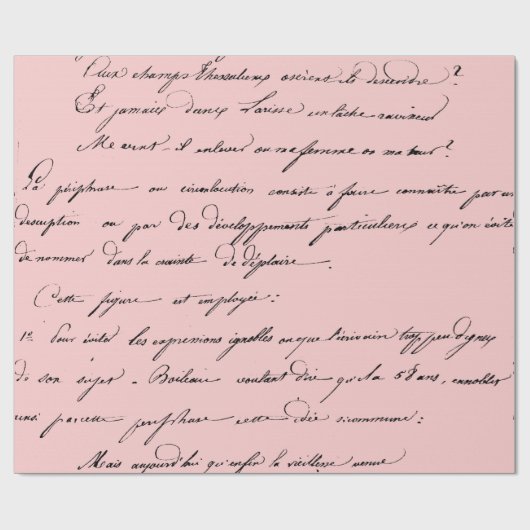 Aux champs Thessaliens osèrent ils descendre ?
Et jamais dans Larisse un lâche ravisseur
Me vint-il enlever ou ma femme ou ma sœur ?
La périphrase ou circonlocution consiste à faire connaître par un
description ou par des développements particuliers ce qu'on évite
de nommer dans la crainte de déplaire.
Cette figure est employée :
1º Pour éviter les expressions ignobles ou que l'écrivain trop peu dignes
de son sujet. Boileau voulant dire qu'il a 58 ans, ennoblit
ainsi par cette périphrase cette idée si commune :
Mais aujourd'hui qu'enfin la vieillesse venue